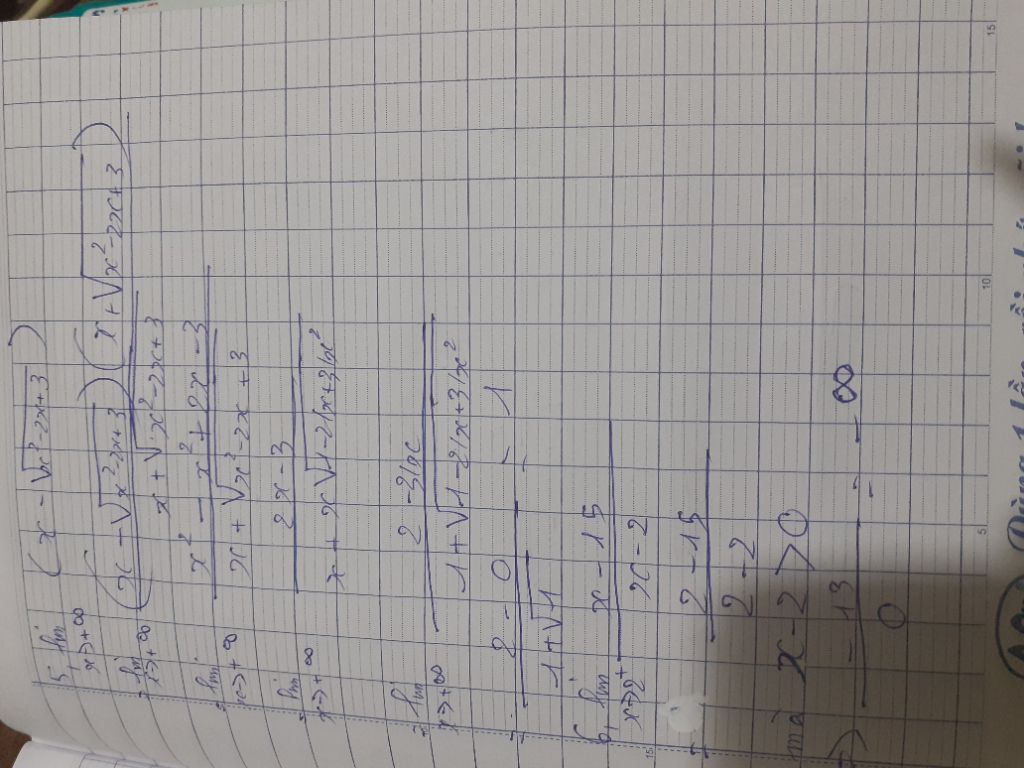 5, lim x->+∞ (x - √x²-2x+3)
= lim x->+∞ (x - √x²-2x+3)(x + √x²-2x+3) / x + √x²-2x+3
= lim x->+∞ x² - x² + 2x - 3 / x + √x²-2x+3
= lim x->+∞ 2x - 3 / x + x√1-2/x+3/x²
= lim x->+∞ 2 - 3/x / 1 + √1-2/x+3/x²
= 2 - 0 / 1+√1 = 1
6, lim x->2⁺ x - 15 / x - 2
= 2 - 15 / 2 - 2
mà x - 2 > 0
=> -13 / 0 = -∞
5
10
15
15